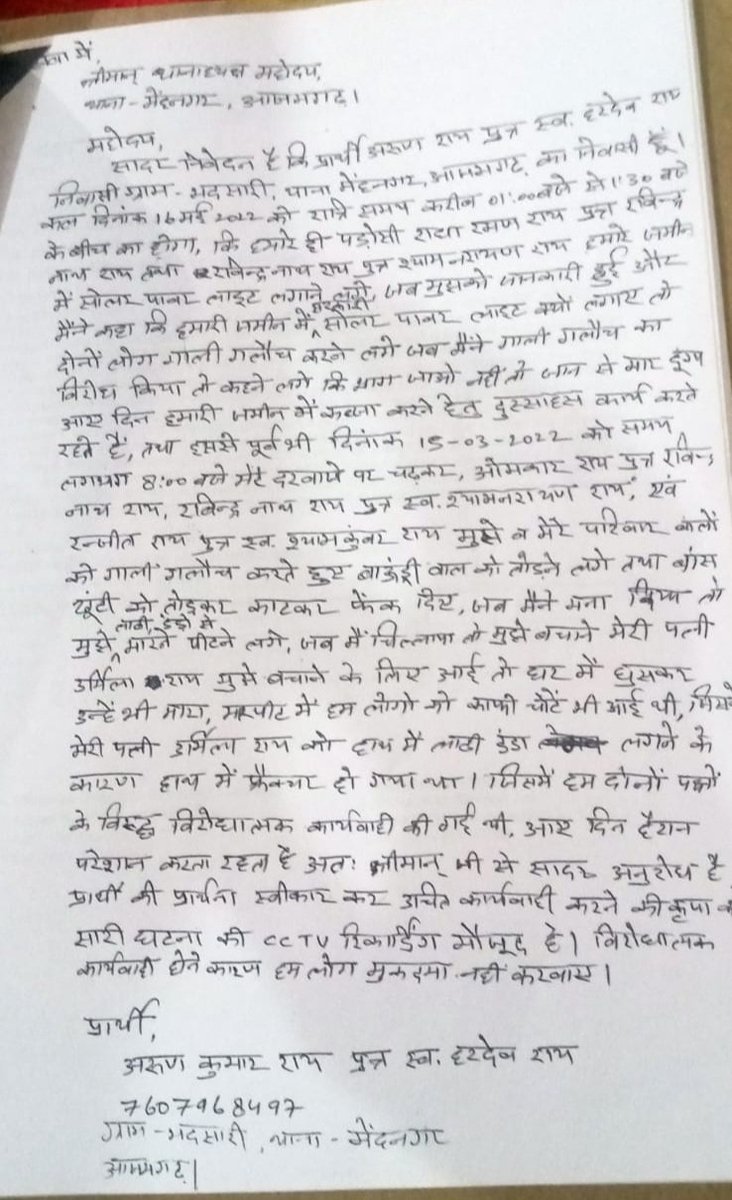 सेवा में,
श्रीमान् थानाध्यक्ष महोदय,
थाना - मेंहनगर, आजमगढ़।
महोदय,
सादर निवेदन है कि प्रार्थी अरुण राय पुत्र स्व. हरदेव राय
निवासी ग्राम - भदसारी, थाना मेंहनगर, आजमगढ़ का निवासी हूँ।
कल दिनांक 16 मई 2022 को रात्रि समय करीब 01:00 बजे से 1:30 बजे
के बीच का होगा, कि हमारे ही पड़ोसी राधा रमण राय पुत्र रविन्द्र
नाथ राय तथा रविन्द्रनाथ राय पुत्र श्यामनरायण राय हमारे जमीन
में सोलर पावर लाइट लगाने लगे, जब मुझको जानकारी हुई और
मैंने कहा कि हमारी जमीन में सरकारी सोलर पावर लाइट क्यों लगाए तो
दोनों लोग गाली गलौच करने लगे जब मैंने गाली गलौच का
विरोध किया तो कहने लगे कि भाग जाओ नहीं तो जान से मार दूंगा
आए दिन हमारी जमीन में कब्जा करने हेतु दुस्साहस कार्य करते
रहते हैं, तथा इससे पूर्व भी दिनांक 15-03-2022 को समय
लगभग 8:00 बजे मेरे दरवाजे पर चढ़कर, ओमकार राय पुत्र रविन्द्र
नाथ राय, रविन्द्र नाथ राय पुत्र स्व. श्यामनरायण राय, एवं
रन्जीत राय पुत्र स्व. श्यामकुंवर राय मुझे व मेरे परिवार वालों
को गाली गलौच करते हुए बाऊंड्री वाल को तोड़ने लगे तथा बांस
खूंटी को तोड़कर काटकर फेंक दिए, जब मैंने मना किया तो
मुझे लाठी, डंडो से मारने पीटने लगे, जब मैं चिल्लाया तो मुझे बचाने मेरी पत्नी
उर्मिला राय मुझे बचाने के लिए आई तो घर में घुसकर
उन्हें भी मारा, मारपीट में हम लोगो को काफी चोटें भी आई थी, जिसमें
मेरी पत्नी उर्मिला राय को हाथ में लाठी डंडा लगने के
कारण हाथ में फ्रैक्चर हो गया था। जिसमें हम दोनों पक्षों
के विरुद्ध विरोधात्मक कार्यवाही की गई थी, आए दिन हैरान
परेशान करता रहता है अतः श्रीमान् जी से सादर अनुरोध है
प्रार्थी की प्रार्थना स्वीकार कर उचित कार्यवाही करने की कृपा
सारी घटना की CCTV रिकार्डिंग मौजूद है। विरोधात्मक
कार्यवाही होने कारण हम लोग मुकदमा नहीं करवाए।
प्रार्थी,
अरुण कुमार राय पुत्र स्व. हरदेव राय
7607968497
ग्राम - भदसारी, थाना - मेंहनगर
आजमगढ़।